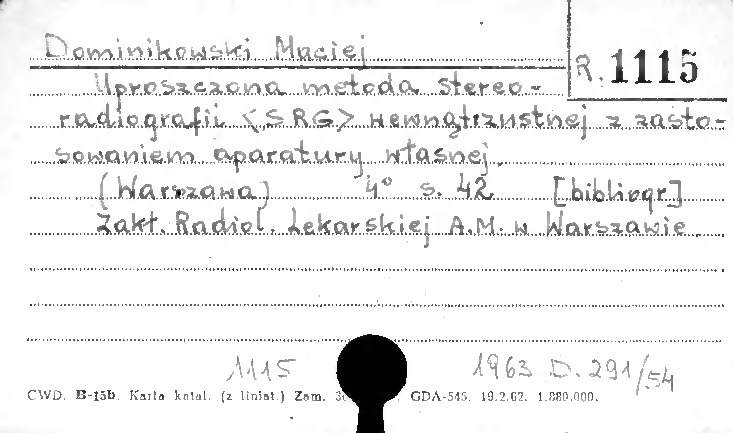 Dominikowski Maciej
R. 1115
Uproszczona metoda stereo-
radiografii <SRG> wewnątrzustnej z zasto-
sowaniem aparatury własnej.
(Warszawa) 4° s. 42 [bibliogr.]
Zakł. Radiol. Lekarskiej A.M. w Warszawie.
1115 1963 D. 291/54
CWD. B-15b. Karta katal. (z liniat.) Zam. GDA-545. 19.2.62. 1.880.000.